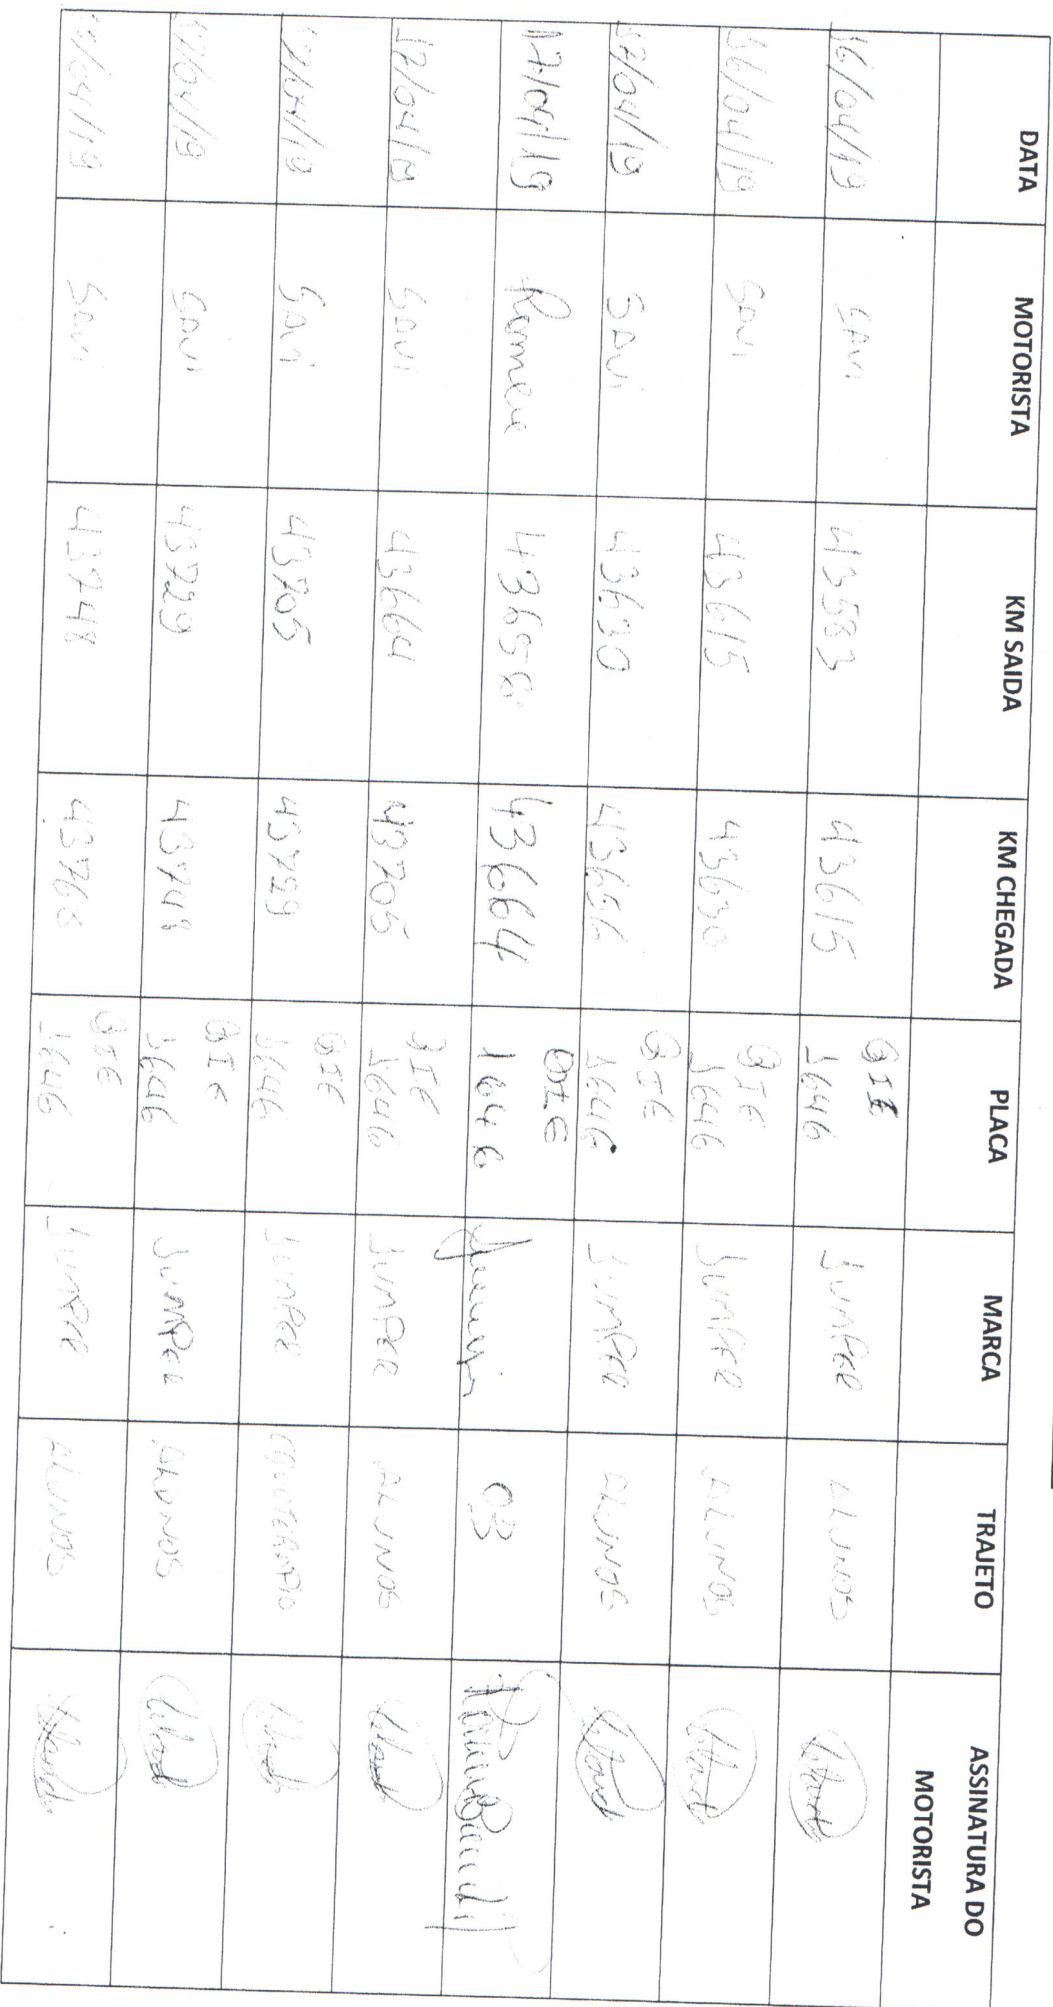 DATA MOTORISTA KM SAIDA KM CHEGADA PLACA MARCA TRAJETO ASSINATURA DO MOTORISTA
16/04/19 SAVI 43583 43615 QIE 1646 JUMPER ALUNOS
16/04/19 SAVI 43615 43630 QIE 1646 JUMPER ALUNOS
17/04/19 SAVI 43630 43656 QIE 1646 JUMPER ALUNOS
17/04/19 43656 43664 QIE 1646 03
17/04/19 SAVI 43664 43705 QIE 1646 JUMPER ALUNOS
17/04/19 SAVI 43705 43729 QIE 1646 JUMPER
17/04/19 SAVI 43729 43748 QIE 1646 JUMPER ALUNOS
/04/19 SAVI 43748 43768 QIE 1646 JUMPER ALUNOS